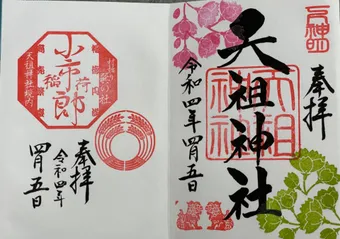 奉拝
天祖神社
天祖神社
令和四年四月五日
小市郎
稲荷
天祖神社境内
奉拝
令和四年
四月五日